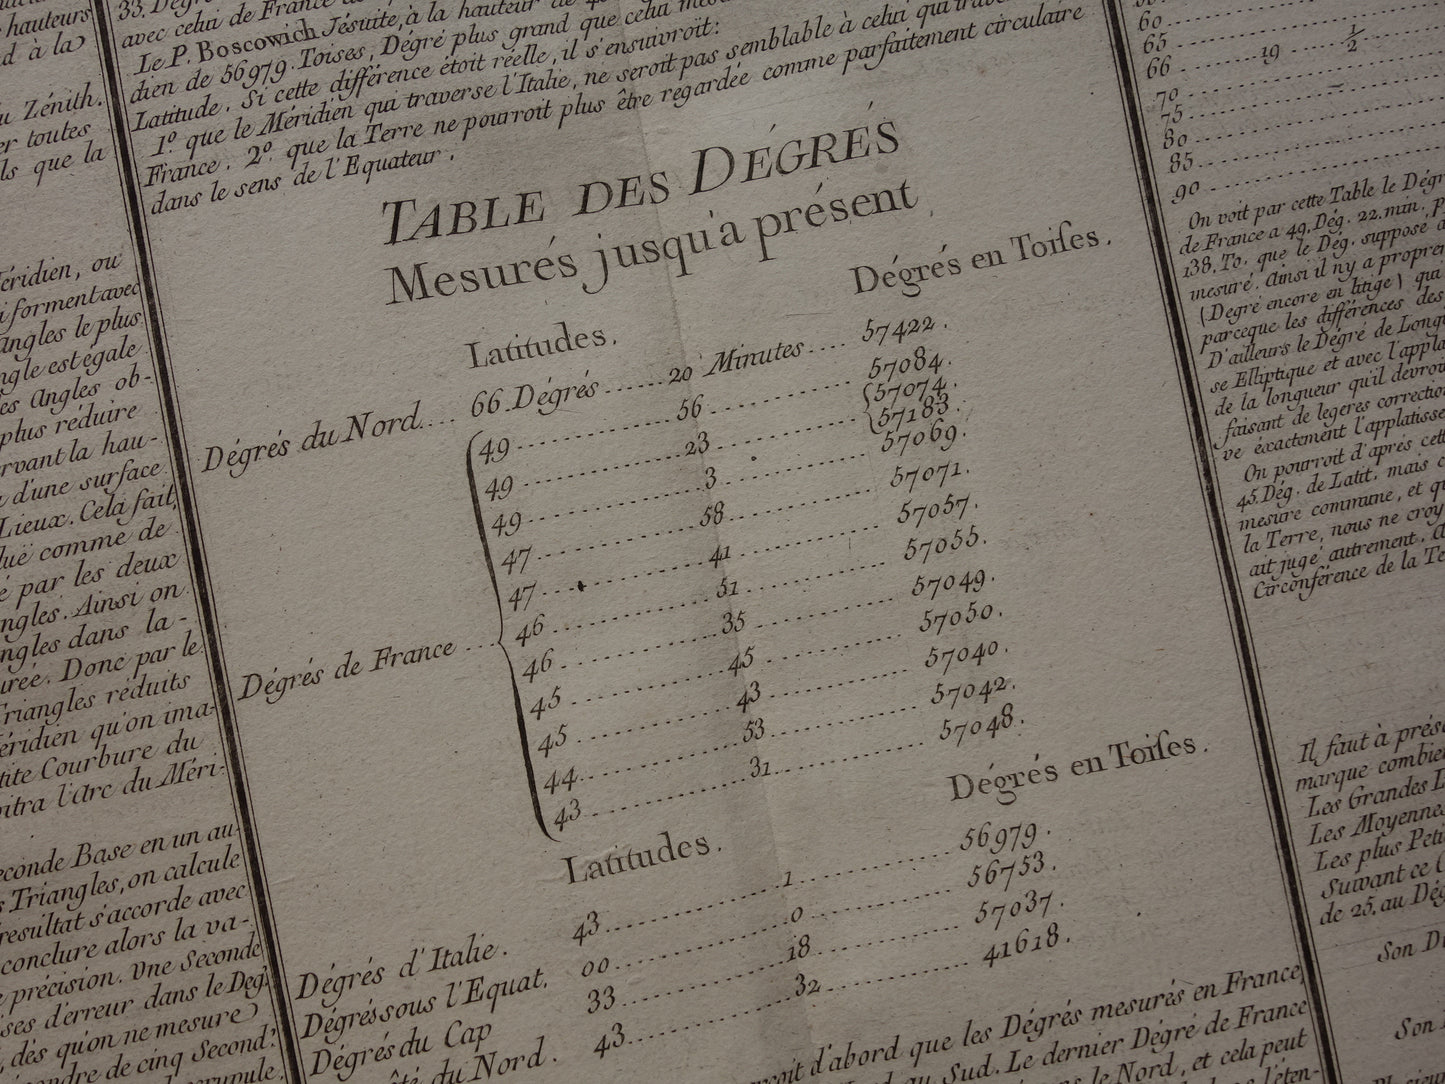 hauteurs
d à la
u Zénith.
er toutes
ls que la
Méridien, ou
i forment avec
angles le plus
ngle est égale
es Angles ob-
plus réduire
ervant la hau-
d'une surface
Lieux. Cela fait,
luë comme de
é par les deux
ngles. Ainsi on
ngles dans la
urée. Donc par le
Triangles réduits
Méridien qu'on ima-
tite Courbure du
oitra l'Arc du Méri-
econde Base en un au-
s Triangles, on calcule
resultat s'accorde avec
conclure alors la va-
e précision. Une Seconde
ises d'erreur dans le Deg.
, dès qu'on ne mesure
ondre de cinq Second.
scrupule.
avec celui de France
Le P. Boscowich Jésuite, à la hauteur de
dien de 56979. Toises, Dégré plus grand que celui
Latitude. Si cette différence étoit réelle, il s'ensuivroit:
1º. que le Méridien qui traverse l'Italie, ne seroit pas semblable à celui qui
France. 2º. que la Terre ne pourroit plus être regardée comme parfaitement circulaire
dans le sens de l'Equateur.
TABLE DES DÉGRÉS
Mesurés jusqu'à présent
Latitudes. Dégrés en Toises.
Dégrés du Nord.... 66. Dégrés...... 20 Minutes.... 57422.
49 ........ 56 ........ 57084.
49 ........ 23 ........ { 57074. 57183.
49 ........ 3 ........ 57069.
47 ........ 58 ........ 57071.
47 ........ 41 ........ 57057.
Dégrés de France ... 46 ........ 51 ........ 57055.
46 ........ 35 ........ 57049.
45 ........ 45 ........ 57050.
45 ........ 43 ........ 57040.
44 ........ 53 ........ 57042.
43 ........ 31 ........ 57048.
Latitudes. Dégrés en Toises.
Dégrés d'Italie. 43 ........ 1 ........ 56979.
Dégrés sous l'Equat. 00 ........ 0 ........ 56753.
Dégrés du Cap 33 ........ 18 ........ 57037.
du Nord. 43 ........ 32 ........ 41618.
d'abord que les Dégrés mesurés en France,
au Sud. Le dernier Dégré de France
le Nord, et cela peut
l'éten-
60
65
66 ...... 19 ...... 1/2
70
75
80
85
90
On voit par cette Table le Dégr
de France a 49. Dég. 22. min. p
138. To. que le Dég. suppose
mesuré. Ainsi il n'y a propre
(Degré encore en litige) qui
parceque les différences des
D'ailleurs le Dégré de Long
se Elliptique et avec l'appla
de la longueur qu'il devroi
faisant de legeres correction
ve éxactement l'applatisse
On pourroit d'après cett
45. Dég. de Latit. mais
mesure commune, et qu
la Terre, nous ne croy
ait jugé autrement.
Circonférence de la Te
Il faut à prés
marque combie
Les Grandes
Les Moyennes
Les plus Peti
Suivant ce
de 25. au Dég
Son D
Son